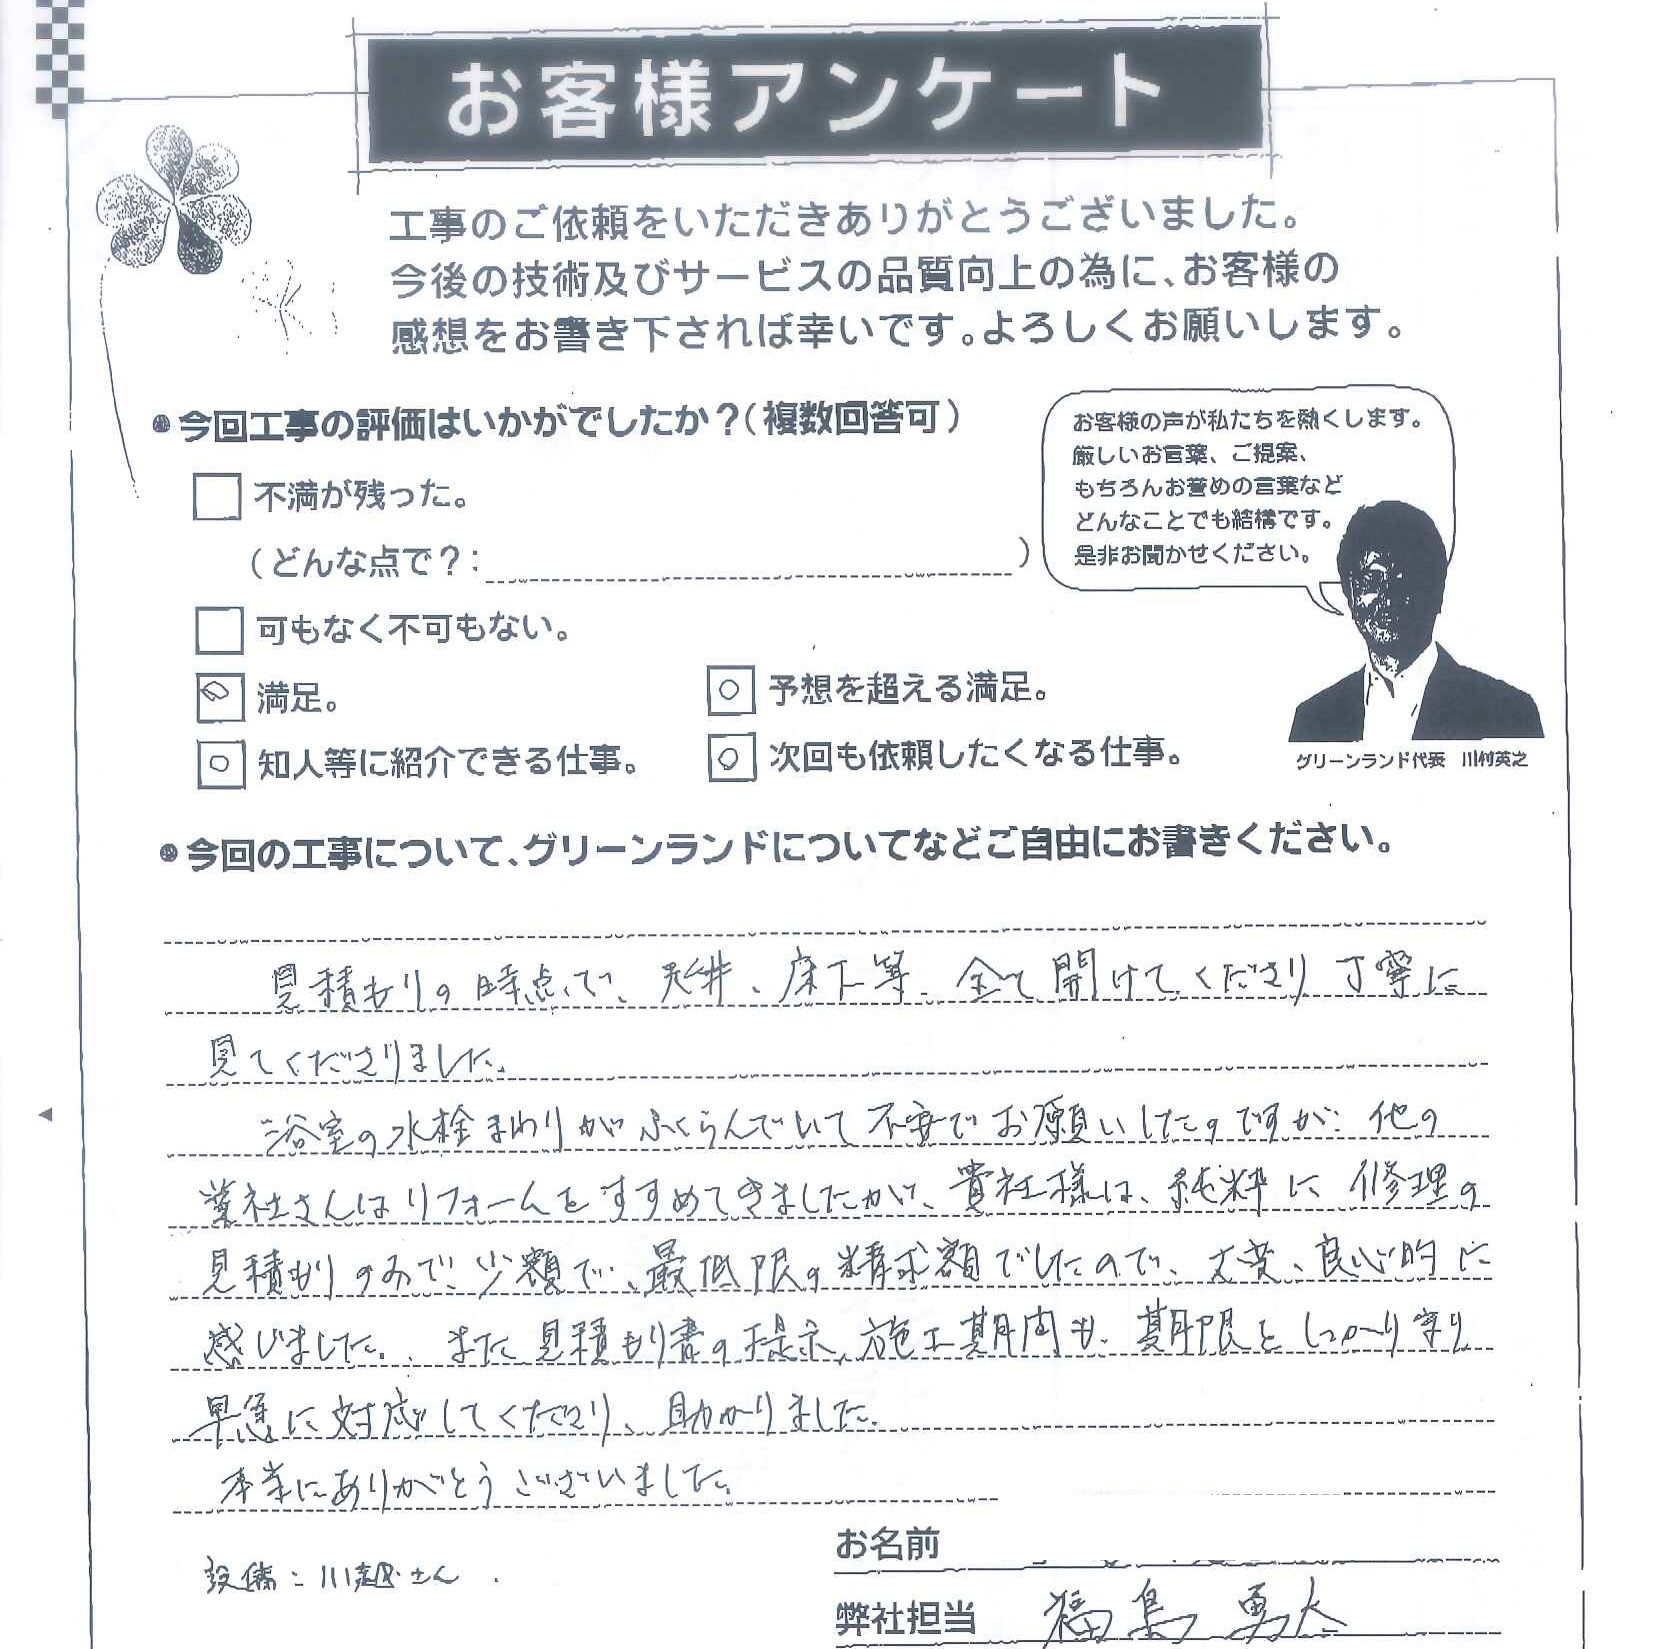 お客様アンケート
工事のご依頼をいただきありがとうございました。
今後の技術及びサービスの品質向上の為に、お客様の
感想をお書き下されば幸いです。よろしくお願いします。
今回工事の評価はいかがでしたか？(複数回答可)
不満が残った。
(どんな点で？: )
可もなく不可もない。
満足。
○ 予想を超える満足。
○ 知人等に紹介できる仕事。
○ 次回も依頼したくなる仕事。
お客様の声が私たちを熱くします。
厳しいお言葉、ご提案、
もちろんお誉めの言葉など
どんなことでも結構です。
是非お聞かせください。
グリーンランド代表 川村英之
今回の工事について、グリーンランドについてなどご自由にお書きください。
見積もりの時点で、天井、床下等、全て開けてくださり丁寧に
見てくださりました。
浴室の水栓まわりがふくらんでいて不安でお願いしたのですが、他の
業社さんはリフォームをすすめてきましたが、貴社様は、純粋に修理の
見積もりのみで、少額で、最低限の精求額でしたので、大変、良心的に
感じました。また見積もり書の提示、施工期間も、期限をしっかり守り
早急に対応してくださり、助かりました。
本当にありがとうございました。
設備：川越さん
お名前
弊社担当 福島勇太